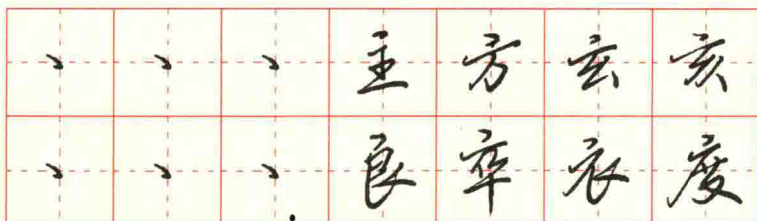 丶丶丶主方玄亥
丶丶丶良卒衣度